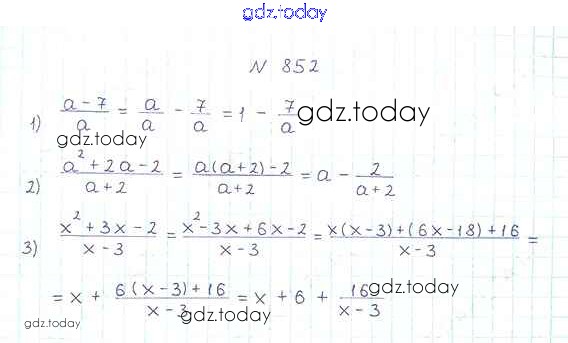 gdz.today
N 852
1) (a - 7)/a = a/a - 7/a = 1 - 7/a gdz.today
gdz.today
2) (a² + 2a - 2)/(a + 2) = (a(a+2) - 2)/(a+2) = a - 2/(a+2)
3) (x² + 3x - 2)/(x - 3) = (x² - 3x + 6x - 2)/(x - 3) = (x(x-3) + (6x-18) + 16)/(x - 3) =
= x + (6(x-3) + 16)/(x - 3) = x + 6 + 16/(x - 3) gdz.today
gdz.today gdz.today